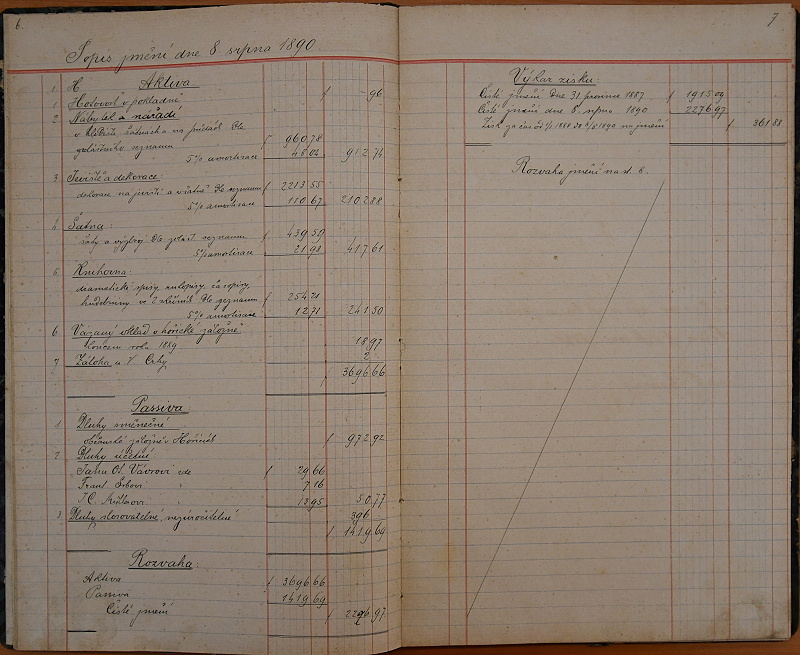 6.
Popis jmění dne 8 srpna 1890
Aktiva
1 Hotovost v pokladně f —96
2 Nábytek a nářadí
v klubu, sálech na půdách dle
seznamu f 960,78
5% amortisace 48,04 912,74
3 Jeviště a dekorace
dekorace na jevišti dle seznamu f 2213,55
5% amortisace 110,67 2102,88
4 Šatna:
šaty a výzbroj dle seznamu f 439,59
5% amortisace 21,98 417,61
5 Knihovna:
dramatické spisy, časopisy,
hudebniny dle seznamu f 254,21
5% amortisace 12,71 241,50
6 Vázaný vklad v hořické záložně
koncem roku 1889 18,97
7 Záloha u V. 2
f 3696,66
Passiva
1 Dluhy směnečné
záložně v Hořicích f 972,92
2 Dluhy účetní
Janu Ot. Vávrovi zde f 29,66
Frant. Srbovi " 7,16
13,95 50,77
3 Dluhy slosovatelné, nezúročitelné 396
f 1419,69
Rozvaha:
Aktiva f 3696,66
Passiva 1419,69
Čisté jmění f 2276,97
7
Výkaz zisku:
Čisté jmění dne 31 prosince 1887 f 1915,09
Čisté jmění dne 8 srpna 1890 2276,97
Zisk za čas od 1/1 1888 do 8/8 1890 na jmění f 361,88
Rozvaha jmění na st. 6.